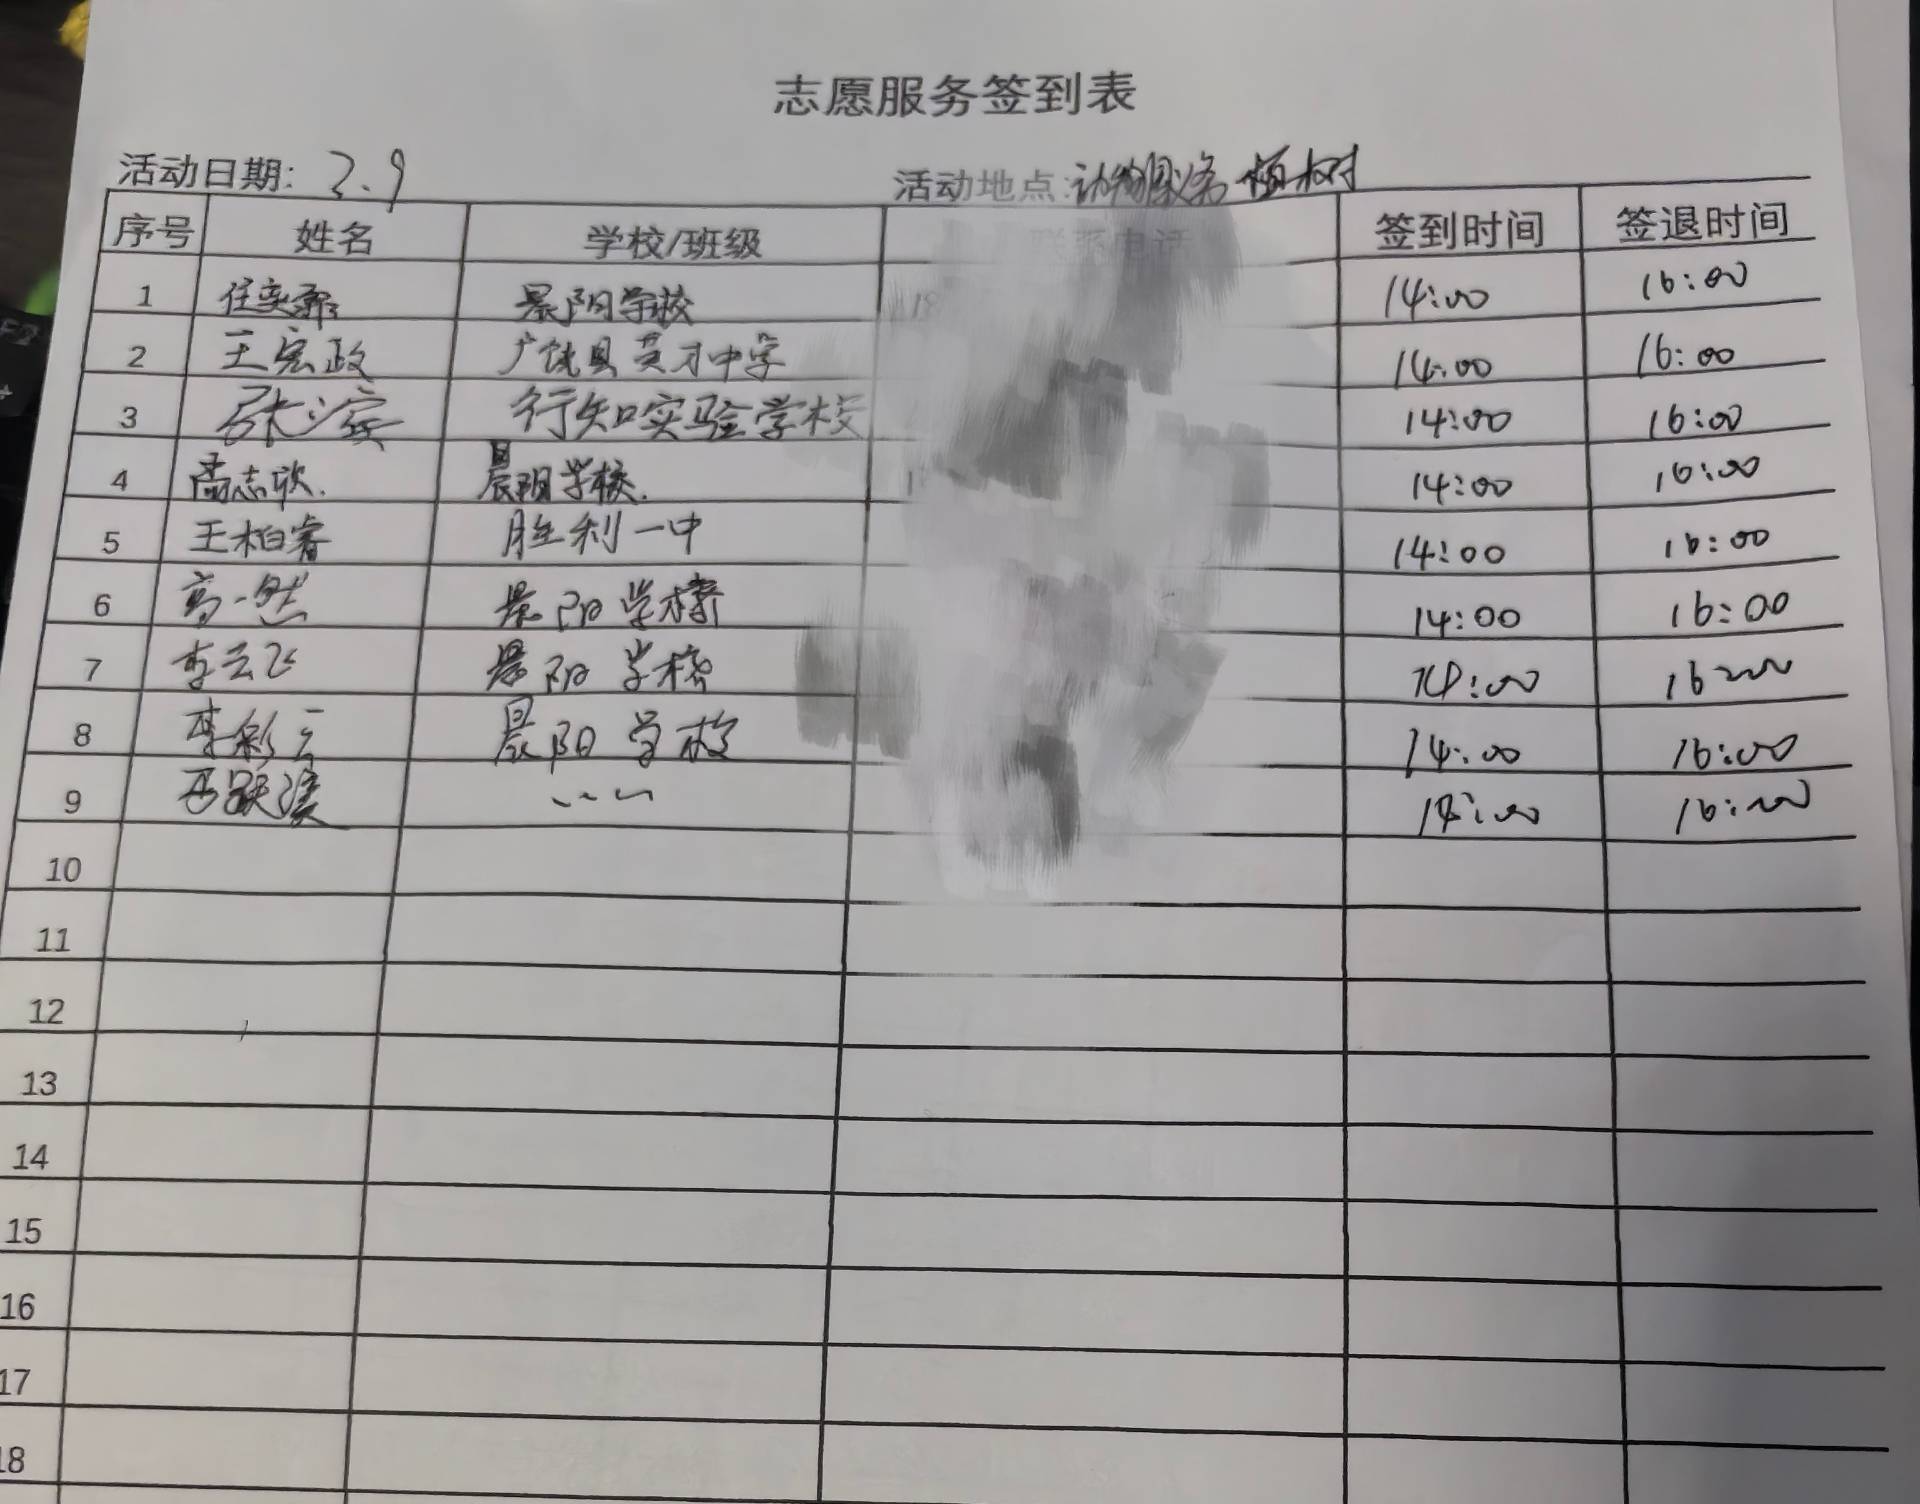 志愿服务签到表
活动日期: 3.9 活动地点: 植树
序号 姓名 学校/班级 联系电话 签到时间 签退时间
1 任奕霏 晨阳学校 18 14:00 16:00
2 王宪政 广饶县英才中学 14:00 16:00
3 张滨 行知实验学校 14:00 16:00
4 志欣. 晨阳学校. 1 14:00 16:00
5 王柏睿 胜利一中 14:00 16:00
6 高一然 晨阳学校 14:00 16:00
7 李云飞 晨阳学校 14:00 16:00
8 李彩云 晨阳学校 14:00 16:00
9 14:00 16:00
10
11
12
13
14
15
16
17
18